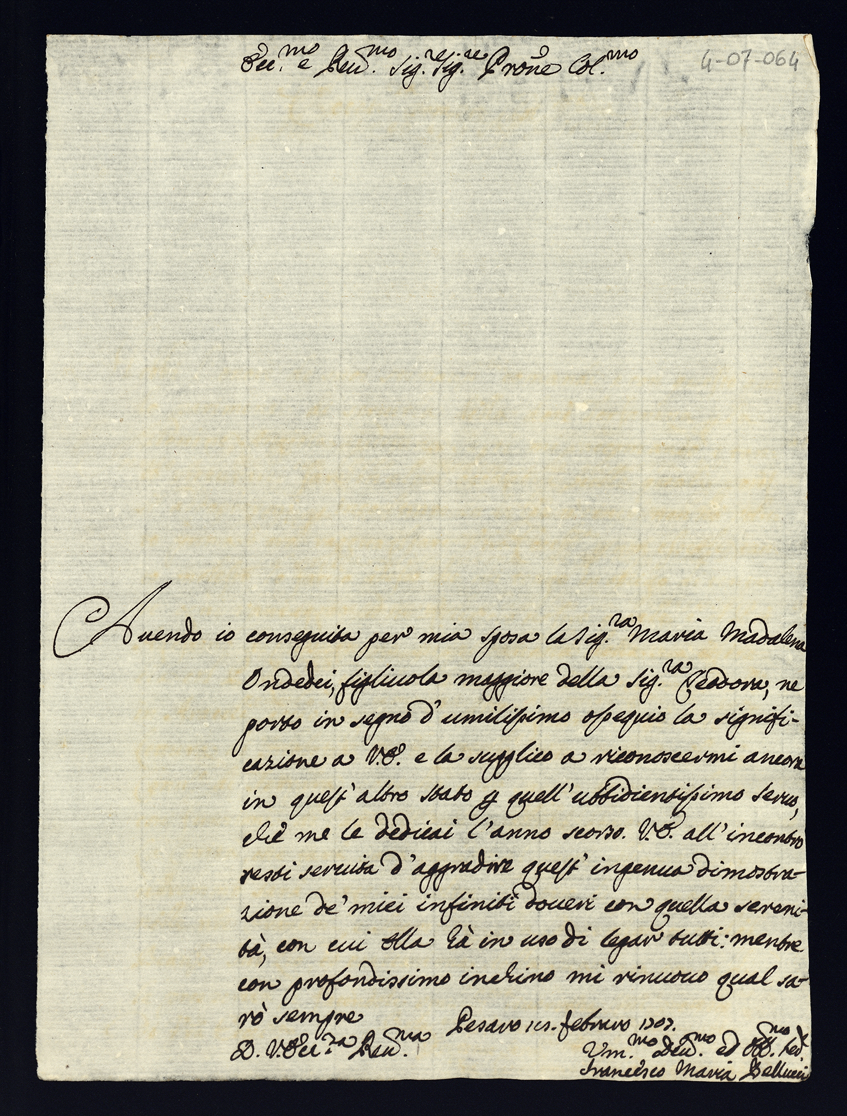 Ecc.mo e Reu.mo Sig.re Sig.re Prone Col.mo
4-07-064
Auendo io conseguita per mia sposa la Sig.ra Maria Madalena
Ondedei, figliuola maggiore della Sig.ra Teodora, ne
porto in segno d'umilissimo ossequio la signifi-
cazione a V.E. e la supplico a riconoscermi ancora
in quest'altro stato p quell'ubbidientissimo seruo,
che me le dedicai l'anno scorso. V.E. all'incontro
resti seruita d'aggradire quest'ingenua dimostra-
zione de' miei infiniti doueri con quella sereni-
tà, con cui ella hà in uso di legar tutti: mentre
con profondissimo inchino mi rinuouo qual sa-
rò sempre
Pesaro febraro 1707.
D. V. Ecc.za Reu.ma
Vm.mo Deu.mo ed Obb.mo
Francesco Maria Bellucci